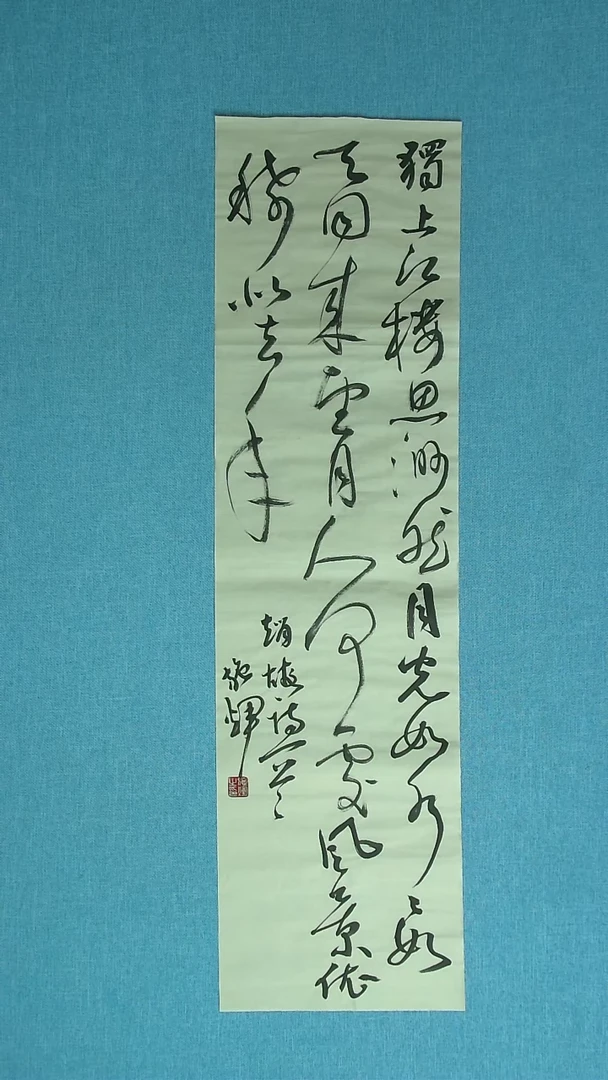 獨上江樓思渺然月光如水々如
天同來望月人何處風景依
稀似去年
趙嘏詩一首
輝